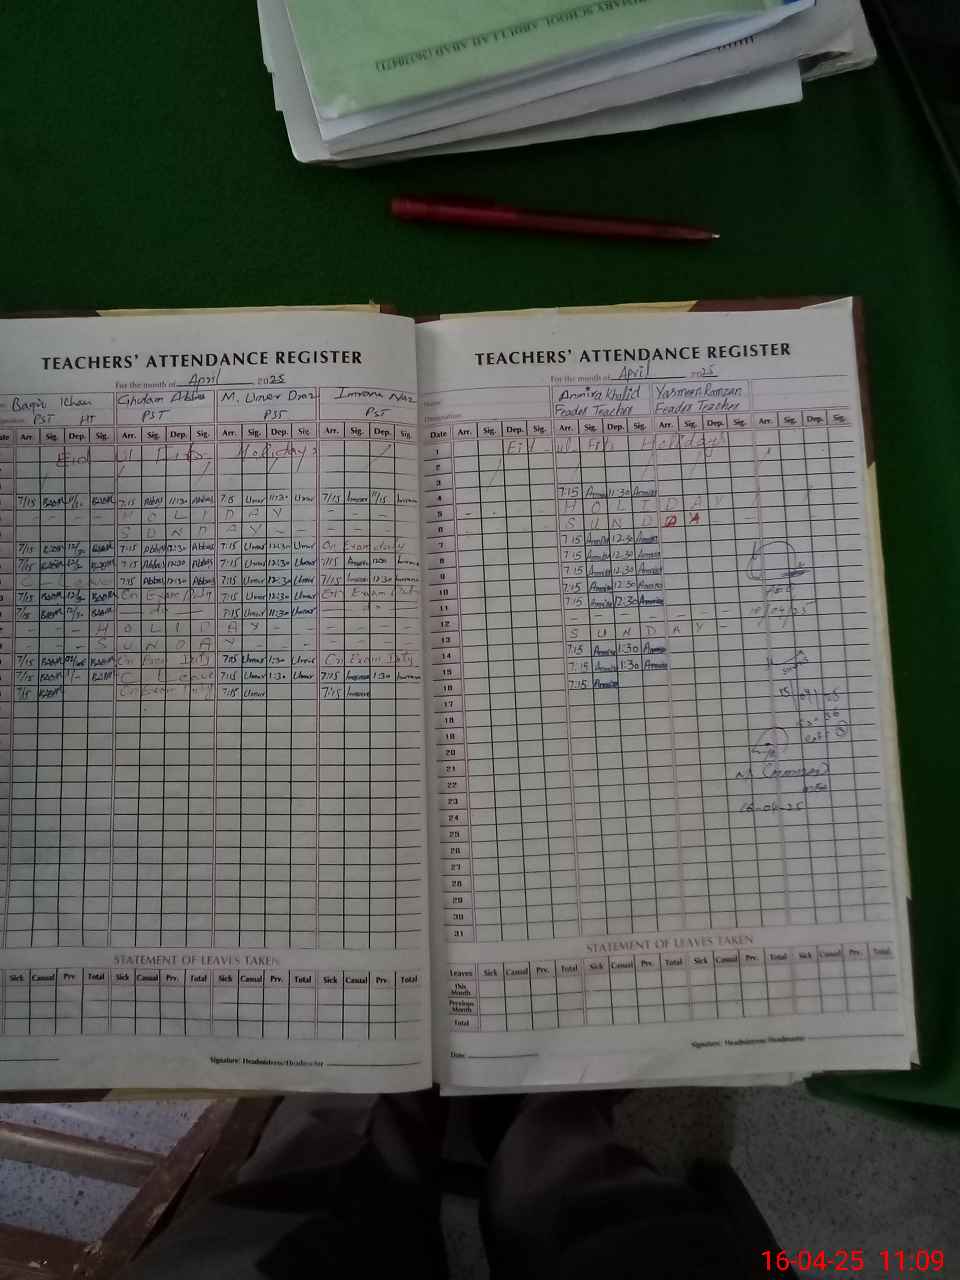 PRIMARY SCHOOL ABDULLAH ABAD
TEACHERS' ATTENDANCE REGISTER
For the month of April 2025
Baqir Khan Ghulam Abbas M. Umer Draz Imrana Naz
PST HT PST PST PST
Date Arr. Sig. Dep. Sig. Arr. Sig. Dep. Sig. Arr. Sig. Dep. Sig. Arr. Sig. Dep. Sig.
Eid ul Fitr Holidays
7/15 7:15 Abbas 11:30 Abbas 7:15 Umer 11:30 Umer 7/15 Imrana 11/15 Imrana
- - - - HOLIDAY - -
SUNDAY -
7/15 7:15 Abbas 12:30 Abbas 7:15 Umer 12:30 Umer On Exam duty
7/15 7:15 Abbas 12:30 Abbas 7:15 Umer 12:30 Umer 7:15 Imrana 12:30 Imrana
C - Leave 7:15 Abbas 12:30 Abbas 7:15 Umer 12:30 Umer 7/15 Imrana 12:30 Imrana
7/15 On Exam Duty 7:15 Umer 12:30 Umer On Exam Duty
7/15 - do - 7:15 Umer 11:30 Umer do -
- - - HOLIDAY - - -
- - - SUNDAY - - - -
7/15 On Exam Duty 7:15 Umer 1:30 Umer On Exam Duty
7/15 C Leave 7:15 Umer 1:30 Umer 7:15 Imrana 1:30 Imrana
7/15 On Exam Duty 7:15 Umer 7:15 Imrana
STATEMENT OF LEAVES TAKEN
Sick Casual Prv. Total Sick Casual Prv. Total Sick Casual Prv. Total Sick Casual Prv. Total
Signature: Headmistress/Headmaster
TEACHERS' ATTENDANCE REGISTER
For the month of April 2025
Name: Ammira Khalid Yasmeen Ramzan
Designation: Feader Teacher Feader Teacher
Date Arr. Sig. Dep. Sig. Arr. Sig. Dep. Sig. Arr. Sig. Dep. Sig. Arr. Sig. Dep. Sig.
1 Eid - ul Fitr Holidays
2
3
4 7:15 Ammira 11:30 Ammira
5 - - - HOLIDAY
6 SUNDAY
7 7:15 Ammira 12:30 Ammira
8 7:15 Ammira 12:30 Ammira
9 7:15 Ammira 12:30 Ammira
10 7:15 Ammira 12:30 Ammira
11 7:15 Ammira 12:30 Ammira
12 - - - - - - - 10/04/25
13 SUNDAY -
14 7:15 Ammira 1:30 Ammira
15 7:15 Ammira 1:30 Ammira
16 7:15 Ammira
17
18
19
20
21
22
23
16-04-25
24
25
26
27
28
29
30
31
STATEMENT OF LEAVES TAKEN
Leaves Sick Casual Prv. Total Sick Casual Prv. Total Sick Casual Prv. Total Sick Casual Prv. Total
This Month
Previous Month
Total
Date: Signature: Headmistress/Headmaster
16-04-25 11:09